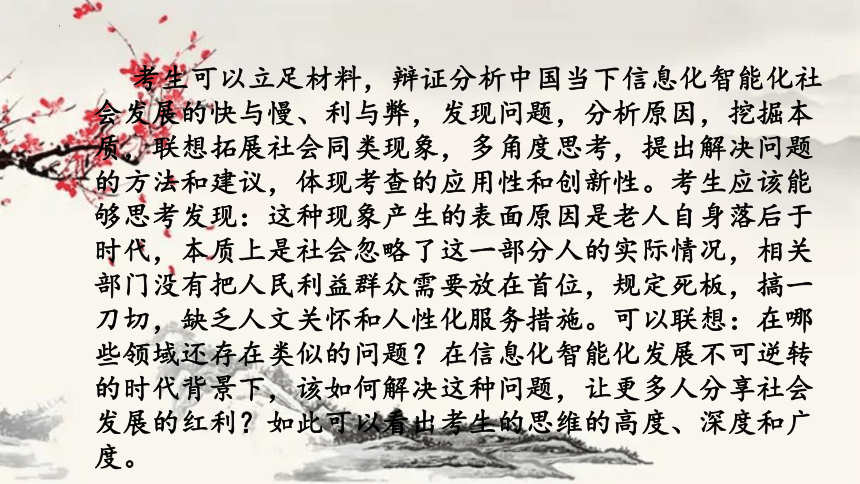 考生可以立足材料，辩证分析中国当下信息化智能化社
会发展的快与慢、利与弊，发现问题，分析原因，挖掘本
质。联想拓展社会同类现象，多角度思考，提出解决问题
的方法和建议，体现考查的应用性和创新性。考生应该能
够思考发现：这种现象产生的表面原因是老人自身落后于
时代，本质上是社会忽略了这一部分人的实际情况，相关
部门没有把人民利益群众需要放在首位，规定死板，搞一
刀切，缺乏人文关怀和人性化服务措施。可以联想：在哪
些领域还存在类似的问题？在信息化智能化发展不可逆转
的时代背景下，该如何解决这种问题，让更多人分享社会
发展的红利？如此可以看出考生的思维的高度、深度和广
度。